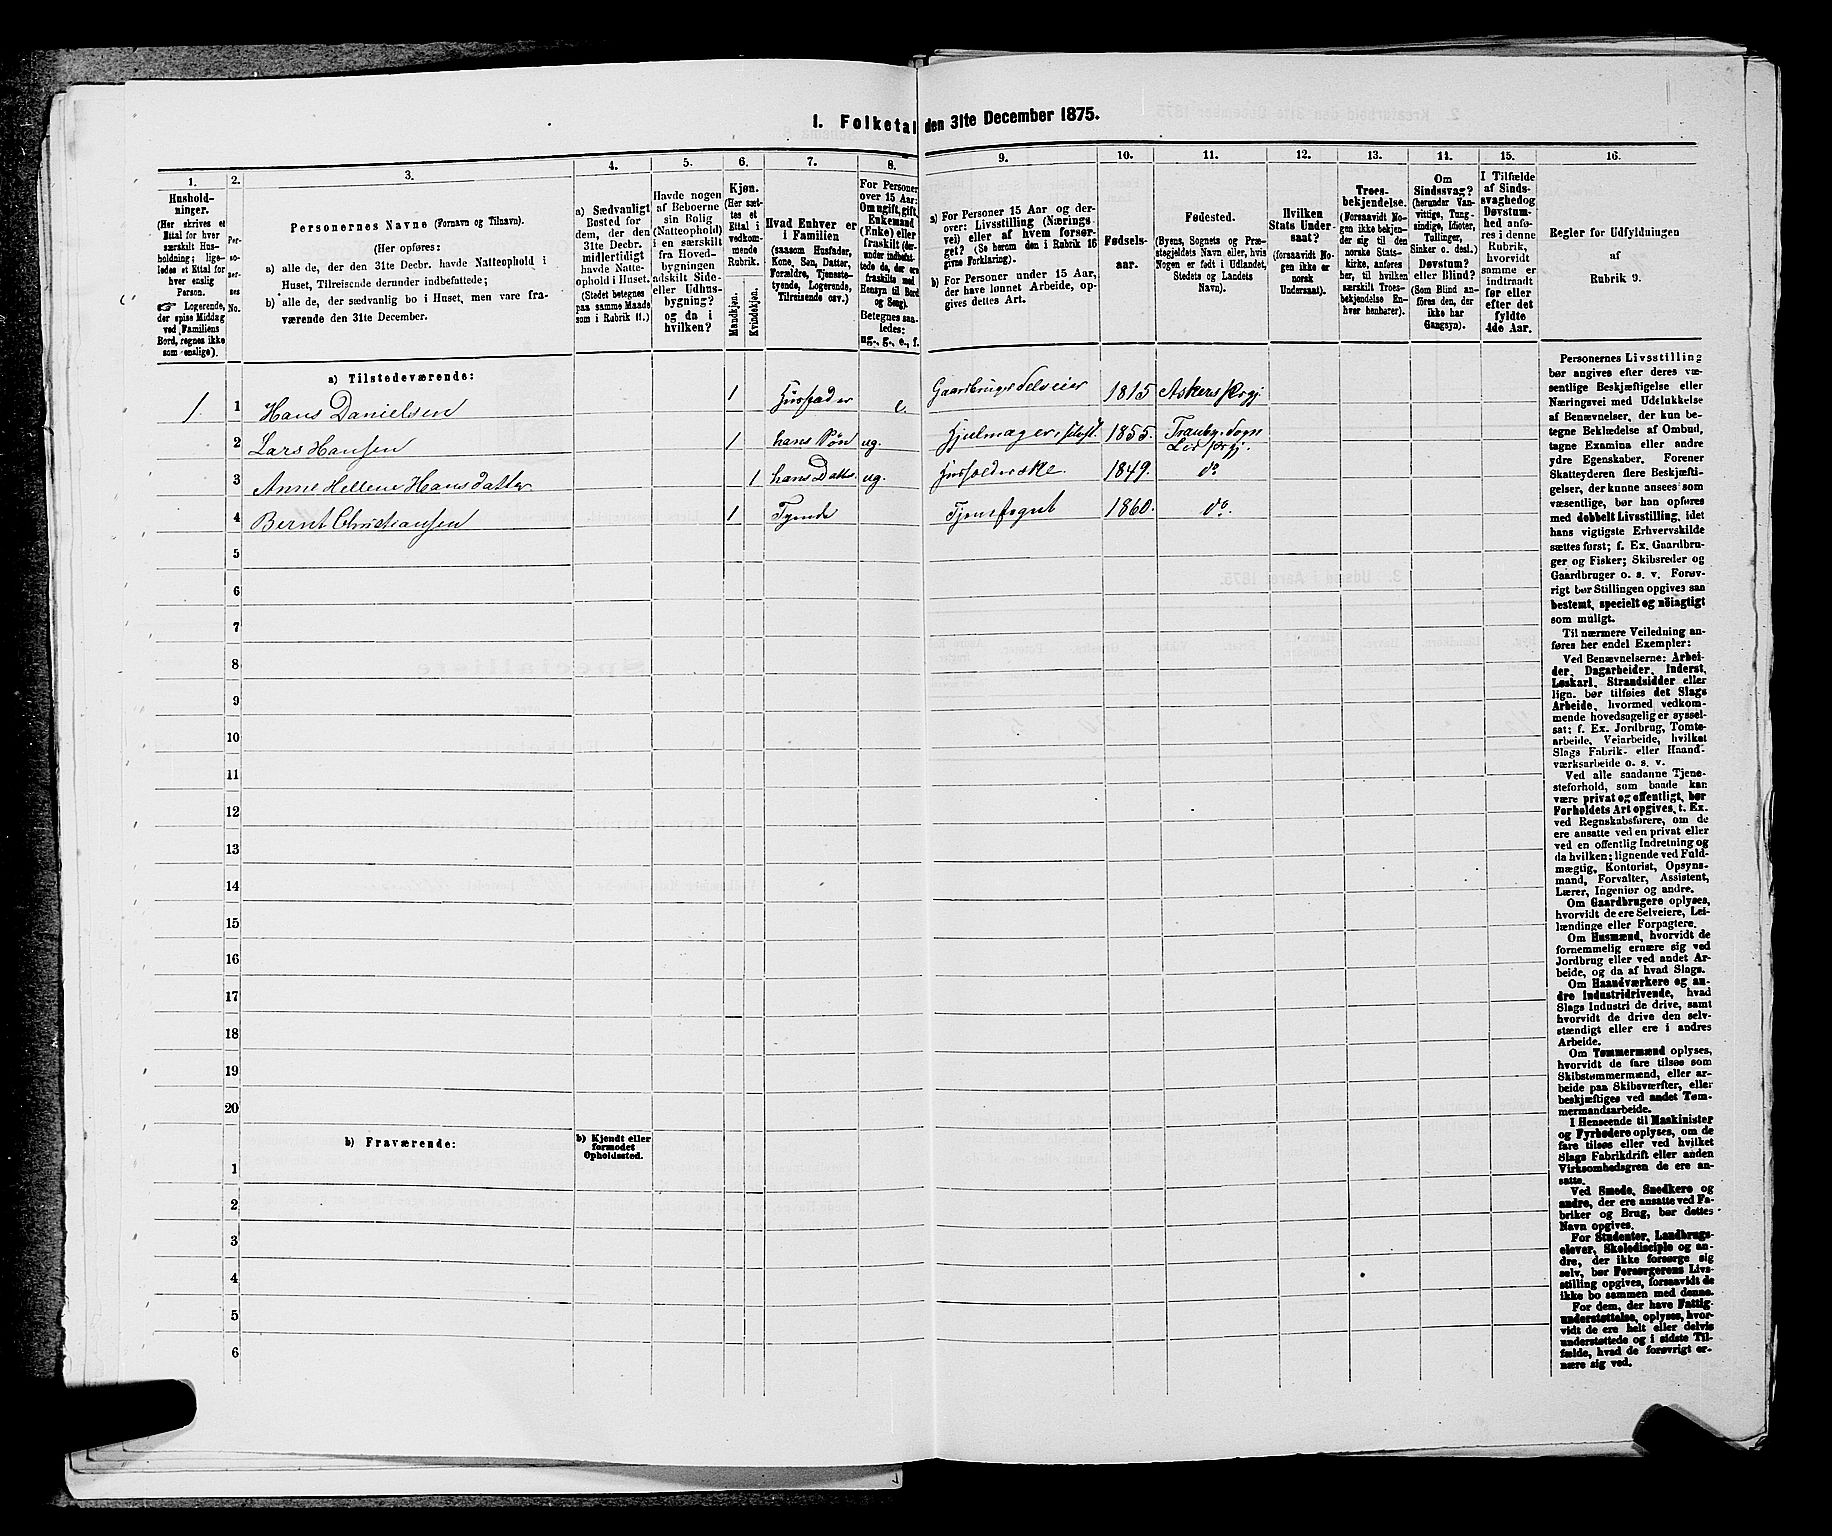 1. Folketal den 31te December 1875.
1.
Husholdninger.
(Her skrives et
Ettal for hver
særskilt Husholdning; ligeledes et Ettal for
hver enslig
Person.
☞ Logerende,
der spise Middag
ved Familiens
Bord, regnes ikke
som enslige).
2.
Personernes
No.
3.
Personernes Navne (Fornavn og Tilnavn).
(Her opføres:
a) alle de, der den 31te Decbr. havde Natteophold i
Huset, Tilreisende derunder indbefattede;
b) alle de, der sædvanlig bo i Huset, men vare fraværende den 31te December.
4.
a) Sædvanligt
Bosted for
dem, der den
31te Decbr.
midlertidigt
havde Natteophold i Huset.
(Stedet betegnes
paa samme Maade
som i Rubrik 11.)
5.
Havde nogen
af Beboerne
sin Bolig
(Natteophold)
i en særskilt
fra Hovedbygningen
adskilt Sideeller Udhusbygning?
og da i
hvilken?
6.
Kjøn.
(Her sættes et
Ettal i
vedkommende
Rubrik.
Mandkjøn.
Kvindekjøn.
7.
Hvad Enhver er
i Familien
(saasom Husfader,
Kone, Søn, Datter,
Forældre, Tjenestetyende, Logerende,
Tilreisende osv.)
8.
For Personer
over 15 Aar:
Om ugift, gift,
Enkemand
(Enke) eller
fraskilt (derunder indbefattede de, der ere
fraskilte med
Hensyn til Bord
og Seng).
Betegnes saaledes:
ug., g., e., f.
9.
a) For Personer 15 Aar og derover: Livsstilling (Næringsvei) eller af hvem forsørget? (Se herom den i Rubrik 16
givne Forklaring).
b) For Personer under 15 Aar,
der have lønnet Arbeide, opgives dettes Art.
10.
Fødselsaar.
11.
Fødested.
(Byens, Sognets og Præstegjeldets Navn eller, hvis
Nogen er født i Udlandet,
Stedets og Landets
Navn).
12.
Hvilken
Stats Undersaat?
(forsaavidt Nogen ikke er
norsk
Undersaat).
13.
Troesbekjendelse.
(Forsaavidt Nogen ikke bekjender sig til den
norske Statskirke, anføres
her, til hvilken
særskilt Troesbekjendelse Enhver henhører).
14.
Om
Sindssvag?
(herunder Vanvittige, Tungsindige, Idioter,
Tullinger,
Sinker o. desl.)
Døvstum?
eller Blind?
(Som Blind anføres den, der
ikke har
Gangsyn).
15.
I Tilfælde
af Sindssvaghed og
Døvstumhed anføres i denne
Rubrik,
hvorvidt
samme er
indtraadt
før eller
efter det
fyldte
4de Aar.
16.
Regler for Udfyldningen
af
Rubrik 9.
a) Tilstedeværende:
1. 1 Hans Danielsen 1 Husfader e. Gaardbruger Selveier 1815 Askers Prgj.
2 Lars Hansen 1 hans Søn ug. Hjulmager, 1855. Tranby Sogn
Lier Prgj.
3 Anne Hellene Hansdatter 1 hans Datter ug. Husholderske. 1849. do
4 Bernt Christiansen 1 Tyende 1860. do.
5
6
7
8
9
10
11
12
13
14
15
16
17
18
19
20
b) Fraværende:
b) Kjendt eller
formodet
Opholdssted.
1
2
3
4
5
6
Personernes Livsstilling
bør angives efter deres væsentlige Beskjæftigelse eller
Næringsvei med Udelukkelse
af Benævnelser, der kun betegne Beklædelse af Ombud,
tagne Examina eller andre
ydre Egenskaber. Forener
Skatteyderen flere Beskjæftigelser, der kunne ansees som
væsentlige, bør han opføres
med dobbelt Livsstilling, idet
hans vigtigste Erhvervskilde
sættes først; f. Ex. Gaardbruger og Fisker; Skibsreder og
Gaardbruger o. s. v. Forøvrigt bør Stillingen opgives saa
bestemt, specielt og nöiagtigt
som muligt.
Til nærmere Veiledning anføres her endel Exempler:
Ved Benævnelserne: Arbeider, Dagarbeider, Inderst,
Løskarl, Strandsidder eller
lign. bør tilføies det Slags
Arbeide, hvormed vedkommende hovedsagelig er sysselsat; f. Ex. Jordbrug, Tomtearbeide, Veiarbeide, hvilket
Slags Fabrik- eller Haandværksarbeide o. s. v.
Ved alle saadanne Tjenesteforhold, som baade kan
være privat og offentligt, bør
Forholdets Art opgives, t. Ex.
ved Regnskabsførere, om de
ere ansatte ved en privat eller
ved en offentlig Indretning og
da hvilken; lignende ved Fuldmægtig, Kontorist, Opsynsmand, Forvalter, Assistent,
Lærer, Ingeniør og andre.
Om Gaardbrugere oplyses,
hvorvidt de ere Selveiere, Leilændinge eller Forpagtere.
Om Husmænd, hvorvidt de
fornemmelig ernære sig ved
Jordbrug eller ved andet Arbeide, og da af hvad Slags.
Om Haandværkere og andre Industridrivende, hvad
Slags Industri de drive, samt
hvorvidt de drive den selvstændigt eller ere i andres
Arbeide.
Om Tømmermænd oplyses,
hvorvidt de fare tilsøs som
Skibstømmermænd, eller arbeide paa Skibsværfter, eller
beskjæftiges ved andet Tømmermandsarbeide.
I Henseende til Maskinister
og Fyrbødere oplyses, om de
fare tilsøs eller ved hvilket
Slags Fabrikdrift eller anden
Virksomhedsgren de ere ansatte.
Ved Smede, Snedkere og
andre, der ere ansatte ved Fabriker og Brug, bør dettes
Navn opgives.
For Studenter, Landbrugselever, Skoledisciple og andre, der ikke forsørge sig
selv, bør Forsørgerens Livsstilling opgives, forsaavidt de
ikke bo sammen med denne.
For dem, der have Fattigunderstøttelse, oplyses, hvorvidt de ere helt eller delvis
understøttede og i sidste Tilfælde, hvad de forøvrigt ernære sig ved.